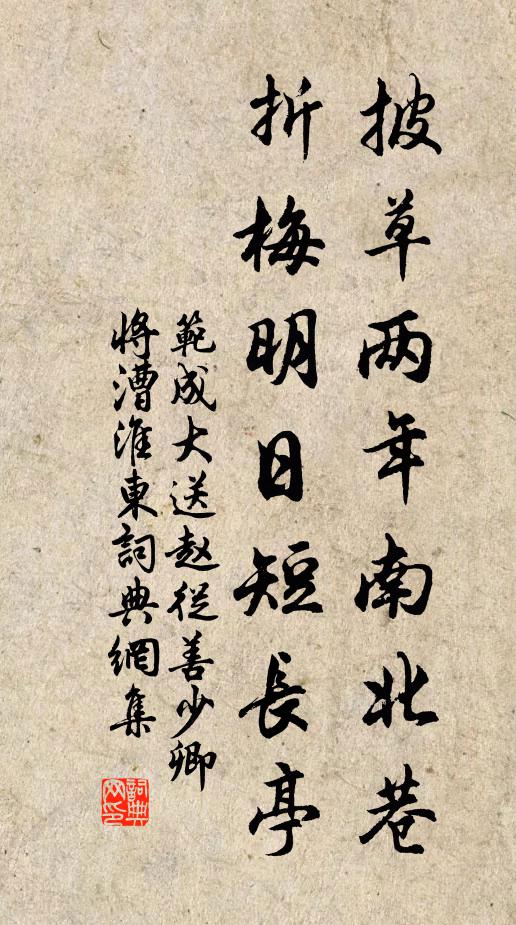 披草两年南北巷
折梅明日短長亭
範成大送趙從善少卿
將漕淮東詞典網集
詞典网印